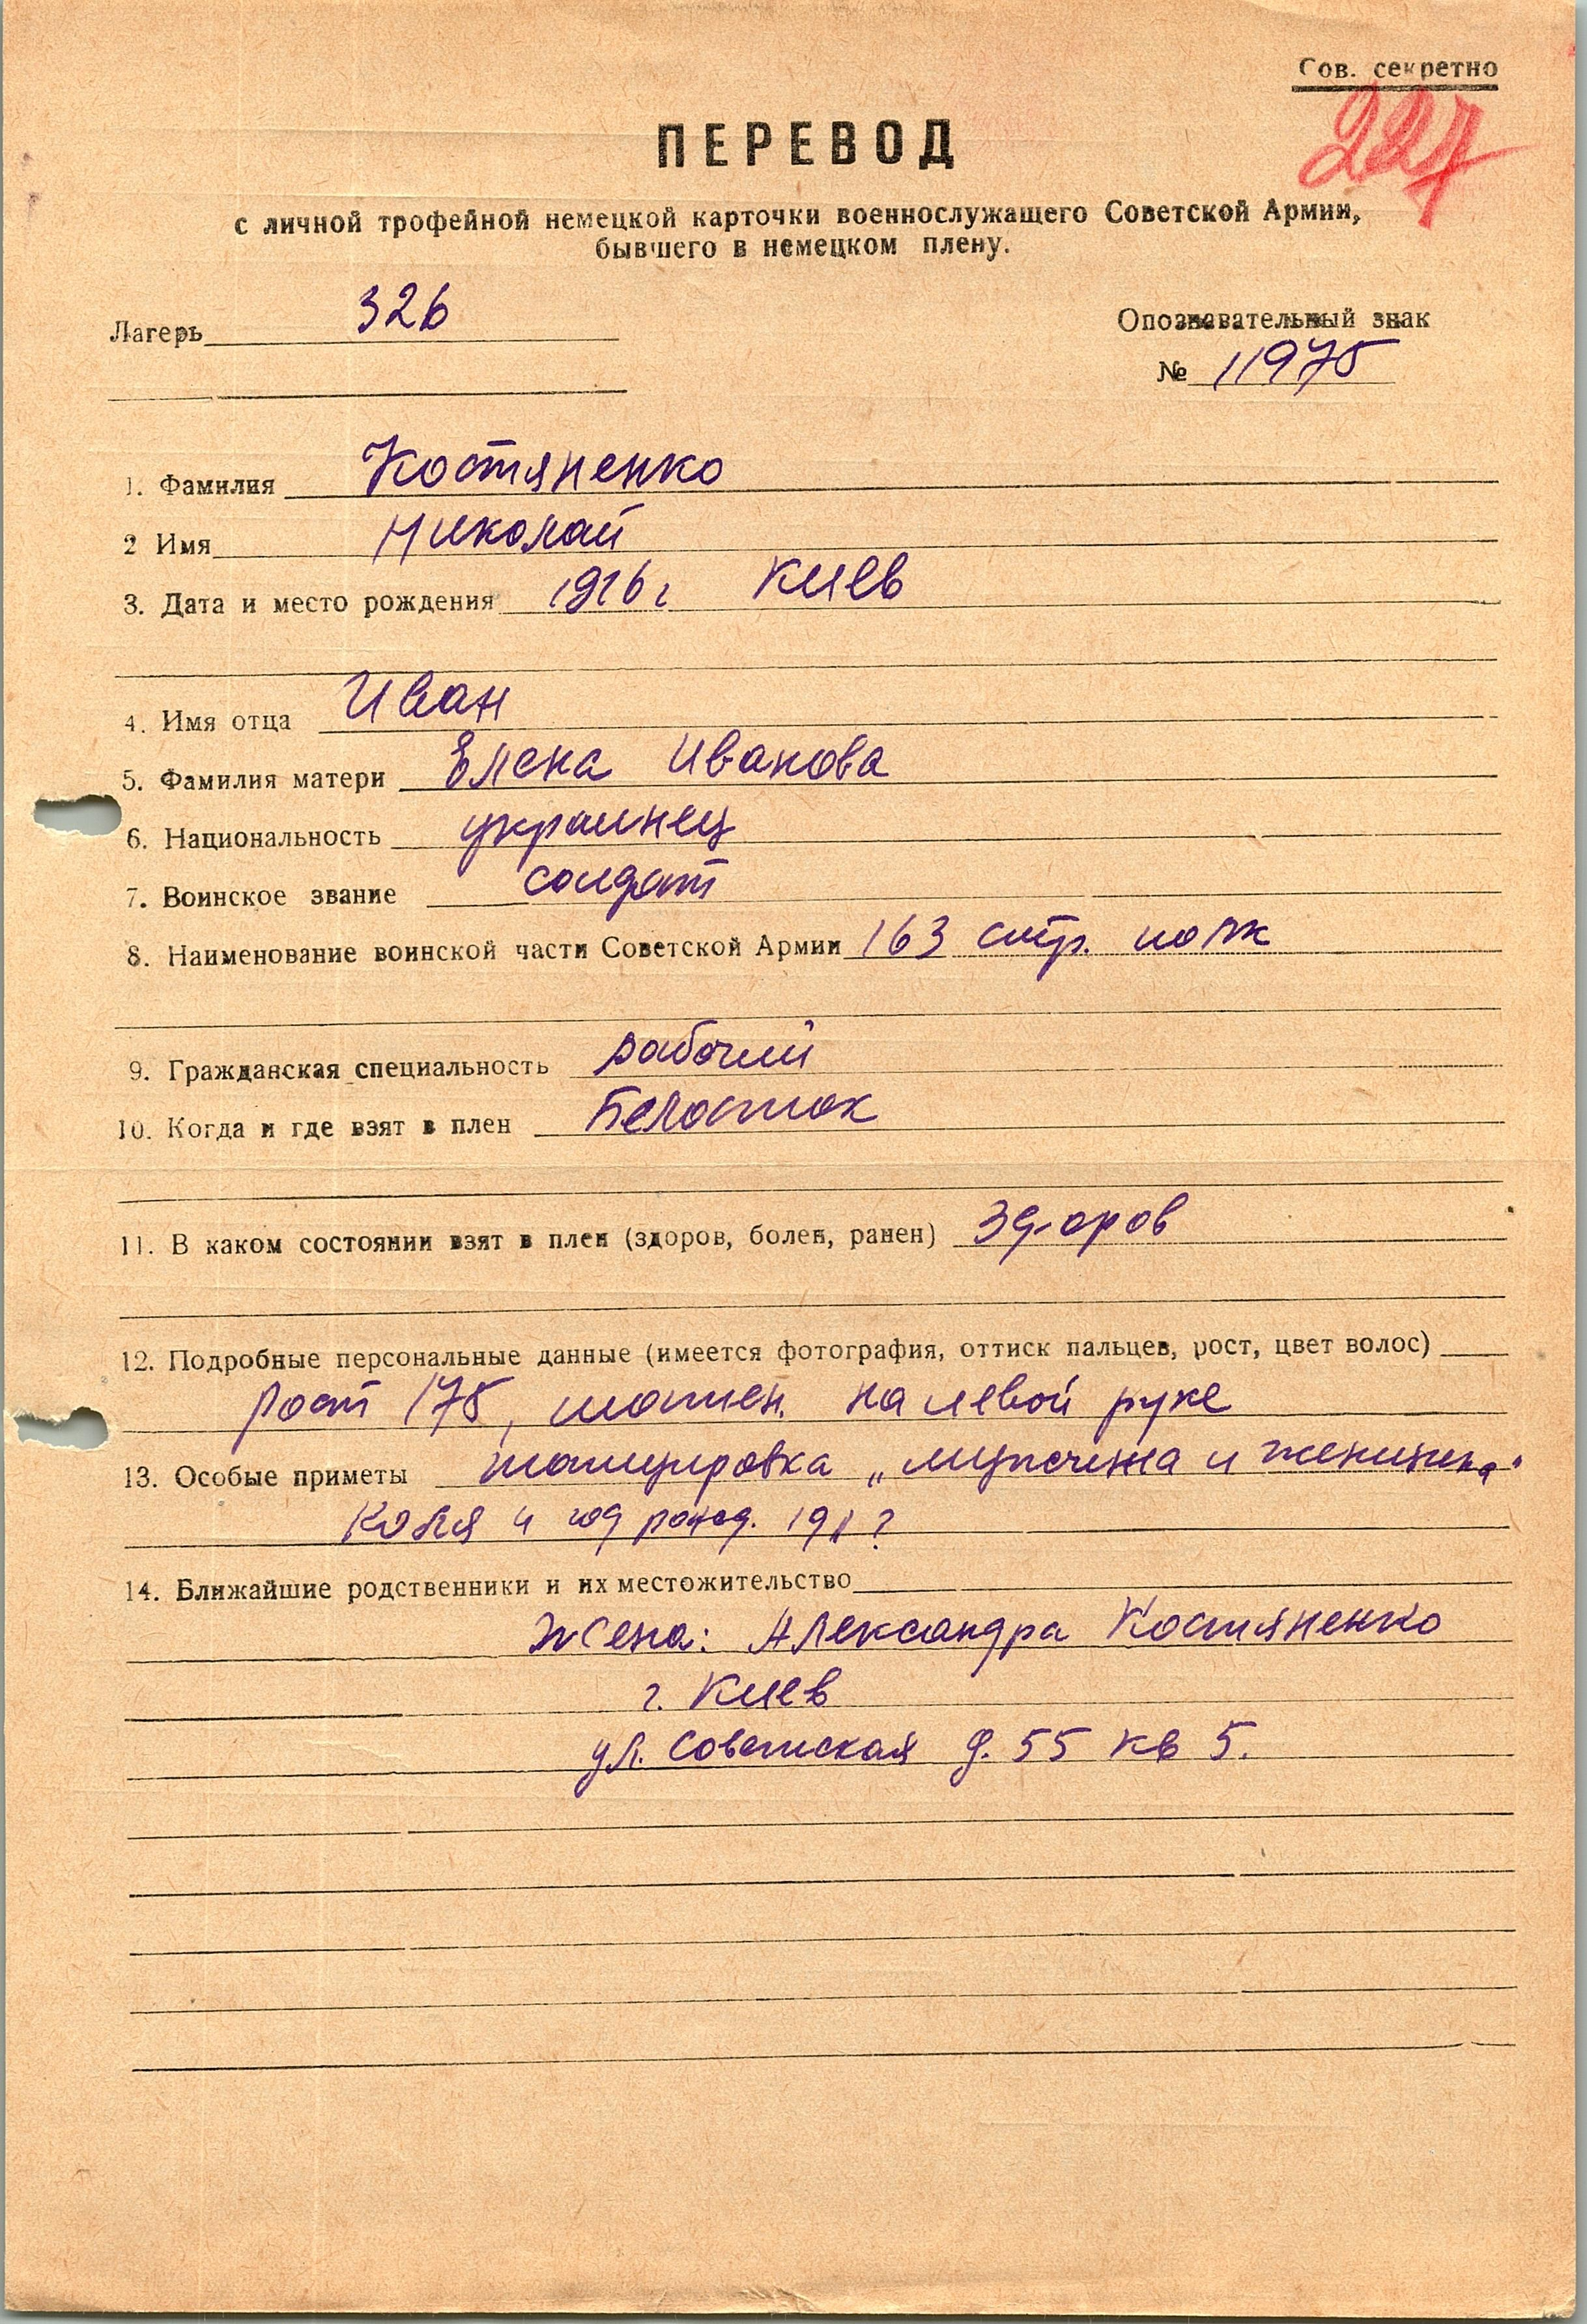 Сов. секретно
227
ПЕРЕВОД
с личной трофейной немецкой карточки военнослужащего Советской Армии,
бывшего в немецком плену.
Лагерь 326
Опознавательный знак
№ 11975
1. Фамилия Костяненко
2 Имя Николай
3. Дата и место рождения 1916 г Киев
4. Имя отца Иван
5. Фамилия матери Елена Иванова
6. Национальность украинец
7. Воинское звание солдат
8. Наименование воинской части Советской Армии 163 стр. полк
9. Гражданская специальность рабочий
10. Когда и где взят в плен Белосток
11. В каком состоянии взят в плен (здоров, болен, ранен) здоров
12. Подробные персональные данные (имеется фотография, оттиск пальцев, рост, цвет волос)
рост 175, шатен. на левой руке
13. Особые приметы татуировка „мужчина и женщина"
Коля и год рожд. 191?
14. Ближайшие родственники и их местожительство
Жена: Александра Костяненко
г. Киев
ул. Советская д. 55 кв 5.